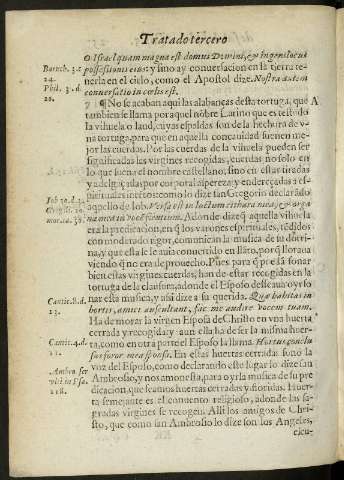 Tratado tercero
O Israel quam magna est domus Domini, & ingens locus
possessionis eius: y sino ay conuersacion en la tierra te-
nerla en el cielo, como el Apostol dize. Nostra autem
conuersatio in cœlis est.
Baruch. 3. c
24.
Phil. 3. d.
20.
7 ¶ No se acaban aqui las alabanças desta tortuga, que A
tambien se llama por aquel nõbre Latino que es testudo
la vihuela o laud, cuyas espaldas son de la hechura de v-
na tortuga, para que en aquella concauidad suenen me-
jor las cuerdas. Por las cuerdas de la vihuela pueden ser
significadas las virgines recogidas, cuerdas no solo en
lo que suena el nombre castellano, sino en estar tiradas
y adelgazadas por corporal aspereza y endereçadas a es-
pirituales
como lo dize san Gregorio declarãdo
aquello de Iob. Versa est in luctum cithara mea, & orga
na mea in vocē flentium. Adonde dize q̃ aquella vihuela
era la predicacion, en q̃ los varones espirituales, teñidos
con moderado rigor, comunican la musica de su doctri-
na, y que esta se le auia conuertido en llãto, porq̃ lloraua
viendo q̃ no era de prouecho. Pues para q̃ en Dios sonar
bien estas virgines cuerdas, han de estar recogidas en la
tortuga de la clausura, donde el Esposo dessea oyr so-
nar esta musica, y assi dize a su querida. Quæ habitas in
hortis, amici auscultant, fac me audire vocem tuam.
Ha de morar la virgen Esposa de Christo en vna huerta
cerrada y recogida: y aun ella ha de ser la misma huer-
ta, como en otra parte el Esposo la llama. Hortus conclu
sus soror mea sponsa. En estas huertas cerradas sono la
voz del Esposo, como declarando este lugar lo dize san
Ambrosio, y nos amonesta, para oyr la musica de su pre
dicacion, que seamos huertas cerradas y floridas. Huer-
ta semejante es el conuento religioso, adonde las sa-
gradas virgines se recogen. Alli los amigos de Chri-
sto, que como san Ambrosio lo dize son los Angeles,
escu-
Iob 30. d. 31.
Gregor. 20.
moral. 30.
Cantic. 8. d.
13.
Cantic. 4. d.
12.
Ambro. ser
in Psa.
118.